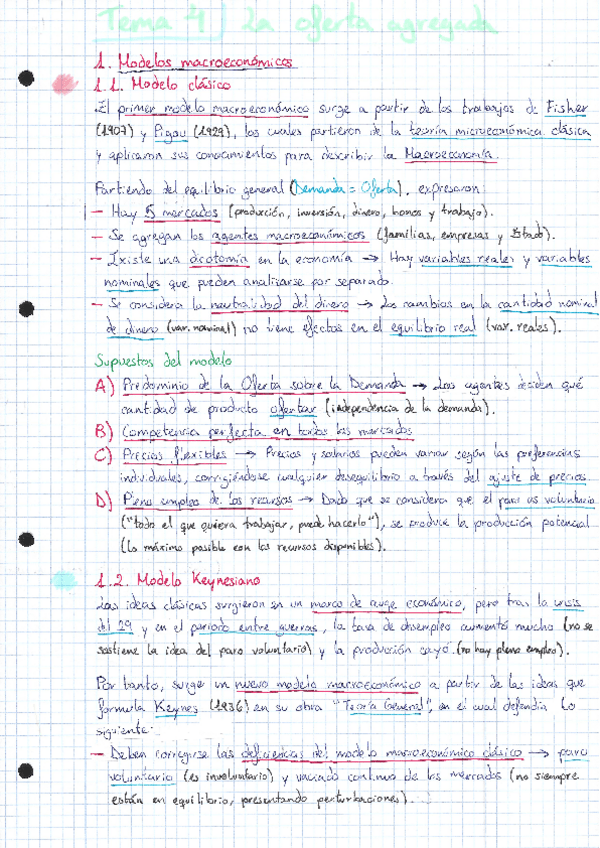 Tema 4 | La oferta agregada
1. Modelos macroeconómicos
1.1. Modelo clásico
El primer modelo macroeconómico surge a partir de los trabajos de Fisher
(1907) y Pigou (1929), los cuales partieron de la teoría microeconómica clásica
y aplicaron sus conocimientos para describir la Macroeconomía.
Partiendo del equilibrio general (Demanda = Oferta), expresaron:
— Hay 5 mercados (producción, inversión, dinero, bonos y trabajo).
— Se agregan los agentes macroeconómicos (familias, empresas y Estado).
— Existe una dicotomía en la economía → Hay variables reales y variables
nominales que pueden analizarse por separado.
— Se considera la neutralidad del dinero → Los cambios en la cantidad nominal
de dinero (var. nominal) no tiene efectos en el equilibrio real (var. reales).
Supuestos del modelo
A) Predominio de la Oferta sobre la Demanda → Los agentes deciden qué
cantidad de producto ofertar (independencia de la demanda).
B) Competencia perfecta en todos los mercados
C) Precios flexibles → Precios y salarios pueden variar según las preferencias
individuales, corrigiéndose cualquier desequilibrio a través del ajuste de precios.
D) Pleno empleo de los recursos → Dado que se considera que el paro es voluntario
("todo el que quiera trabajar, puede hacerlo"), se produce la producción potencial
(lo máximo posible con los recursos disponibles).
1.2. Modelo Keynesiano
Las ideas clásicas surgieron en un marco de auge económico, pero tras la crisis
del 29 y en el período entre guerras, la tasa de desempleo aumentó mucho (no se
sostiene la idea del paro voluntario) y la producción cayó (no hay pleno empleo).
Por tanto, surge un nuevo modelo macroeconómico a partir de las ideas que
formula Keynes (1936) en su obra "Teoría General", en el cual defendía lo
siguiente:
— Deben corregirse las deficiencias del modelo macroeconómico clásico → paro
voluntario (es involuntario) y vaciado continuo de los mercados (no siempre
están en equilibrio, presentando perturbaciones).